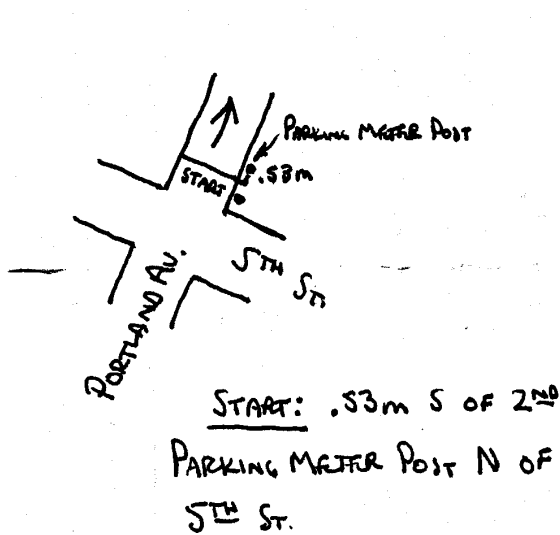 PARKING METER POST
.53m
START
5TH ST.
PORTLAND AV.
START: .53m S OF 2ND
PARKING METER POST N OF
5TH ST.